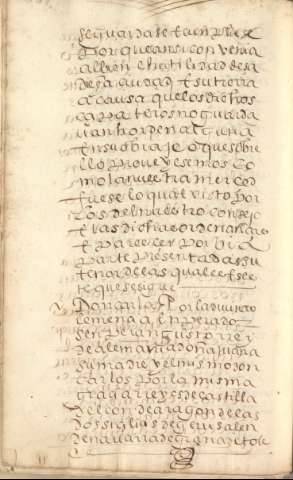 se guardase e cunpliese
porque ansi convenia
al bien e hutilidad desa
desa ciudad e su tierra
a causa que los dichos
capateros no guarda
van horpenança
en su obraje o que sobre
ello proveyesemos co
mo la nuestra merced
fuese lo qual visto por
los del nuestro consejo
e las dichas ordenanças
e parecer por v
parte presentadas su
tenor de las quales es es
te que se sigue
Don carlos por la divina
clemencia enperador
senper angusto rey
de alemania doña juana
su madre y el mismo don
carlos por la misma
gracia reyes de castilla
de leon de aragon de las
dos siçilias de jerusalen
de navarra de granada de tole